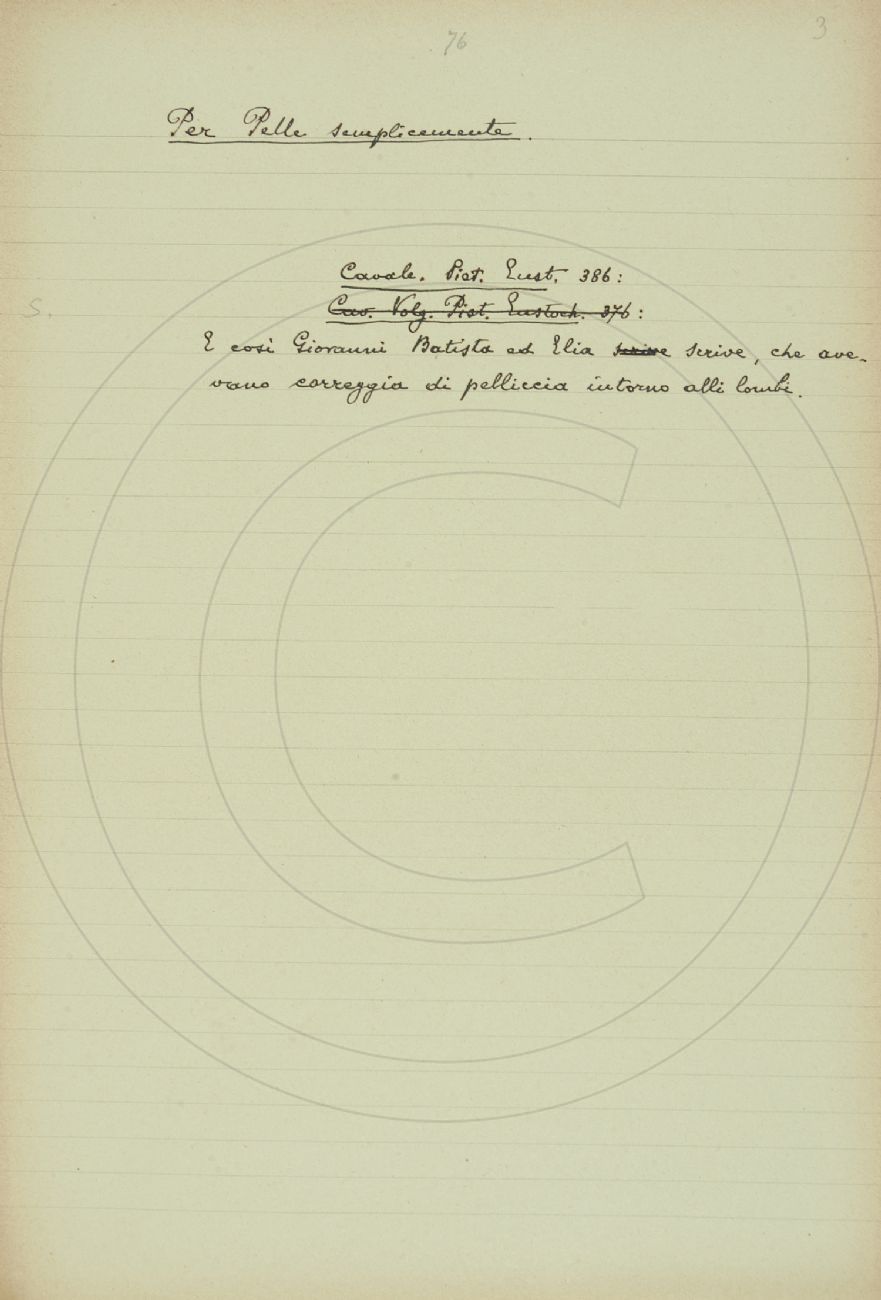 76
3
Per Pelle semplicemente.
Cavalc. Pist. Eust. 386:
Cav. Volg. Pist. Eustoch. 376:
S.
E così Giovanni Batista ed Elia scrive scrive, che ave-
vano correggia di pelliccia intorno alli lombi.